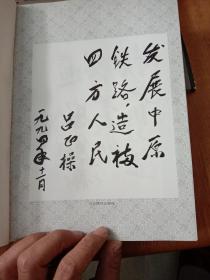 发展中原
铁路，造福
四方人民
吕正操
一九九四年十一月